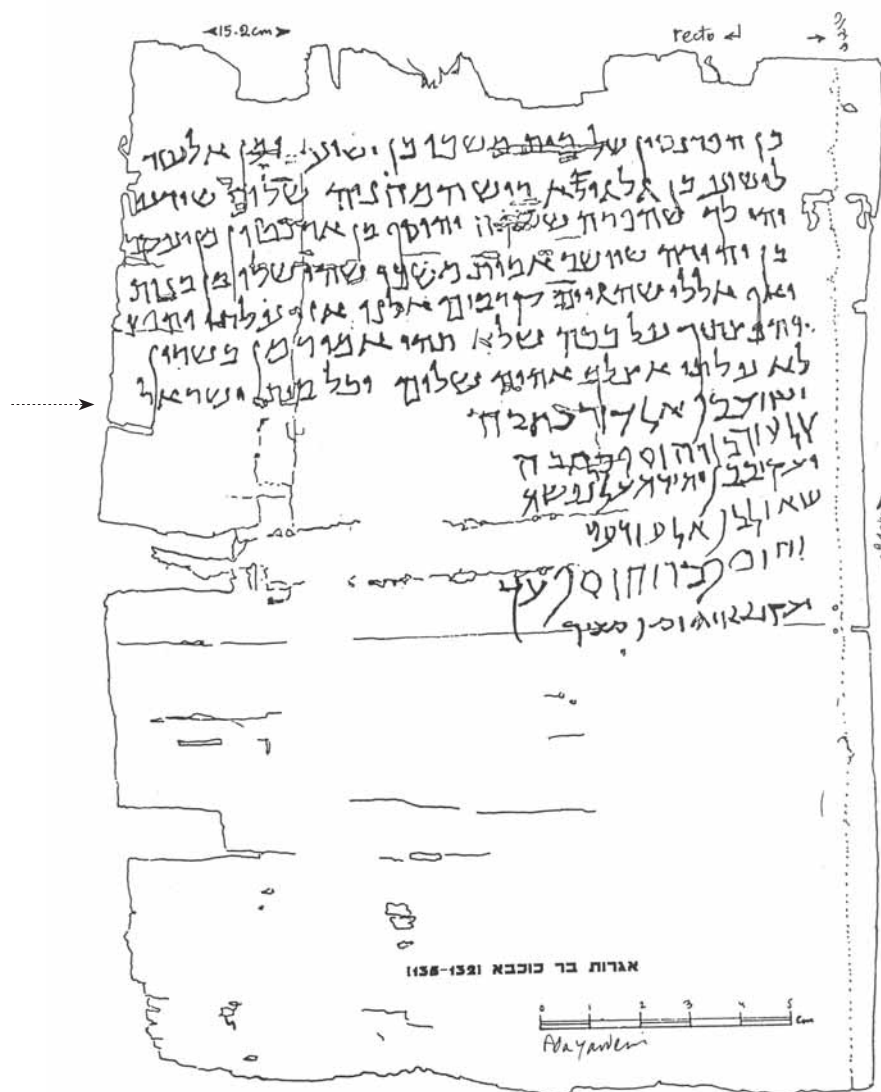 recto
15.2cm
מן הפרנסין של בית משכו מן ישוע ומן אלעזר
לישוע בן גלגולא ריש המחניה שלום שידע
יהי לך שהפרה שלקח יהוסף בן ארסטון מן יעקב
בן יהודה שיושב בבית משכו שהי שלו מזבנות
ואף אללי שהגיים קרבים אלנו אזי עלתי
והפצתיך על ככה שלא תהי אמור מן בסרון
לא עלתי אצלך אהוה שלום וכל בית ישראל
ישוע בן אלעזר כתבה
אלעזר בן יהוסף כתבה
יעקב בן יהוסף על נפשה
שאול בן אלעזר עד
יהוסף בר יהוסף עד
יעקב בן יהוסף מעיד
אגרות בר כוכבא (135-132)
0 1 2 3 4 5 cm
Ada Yardeni